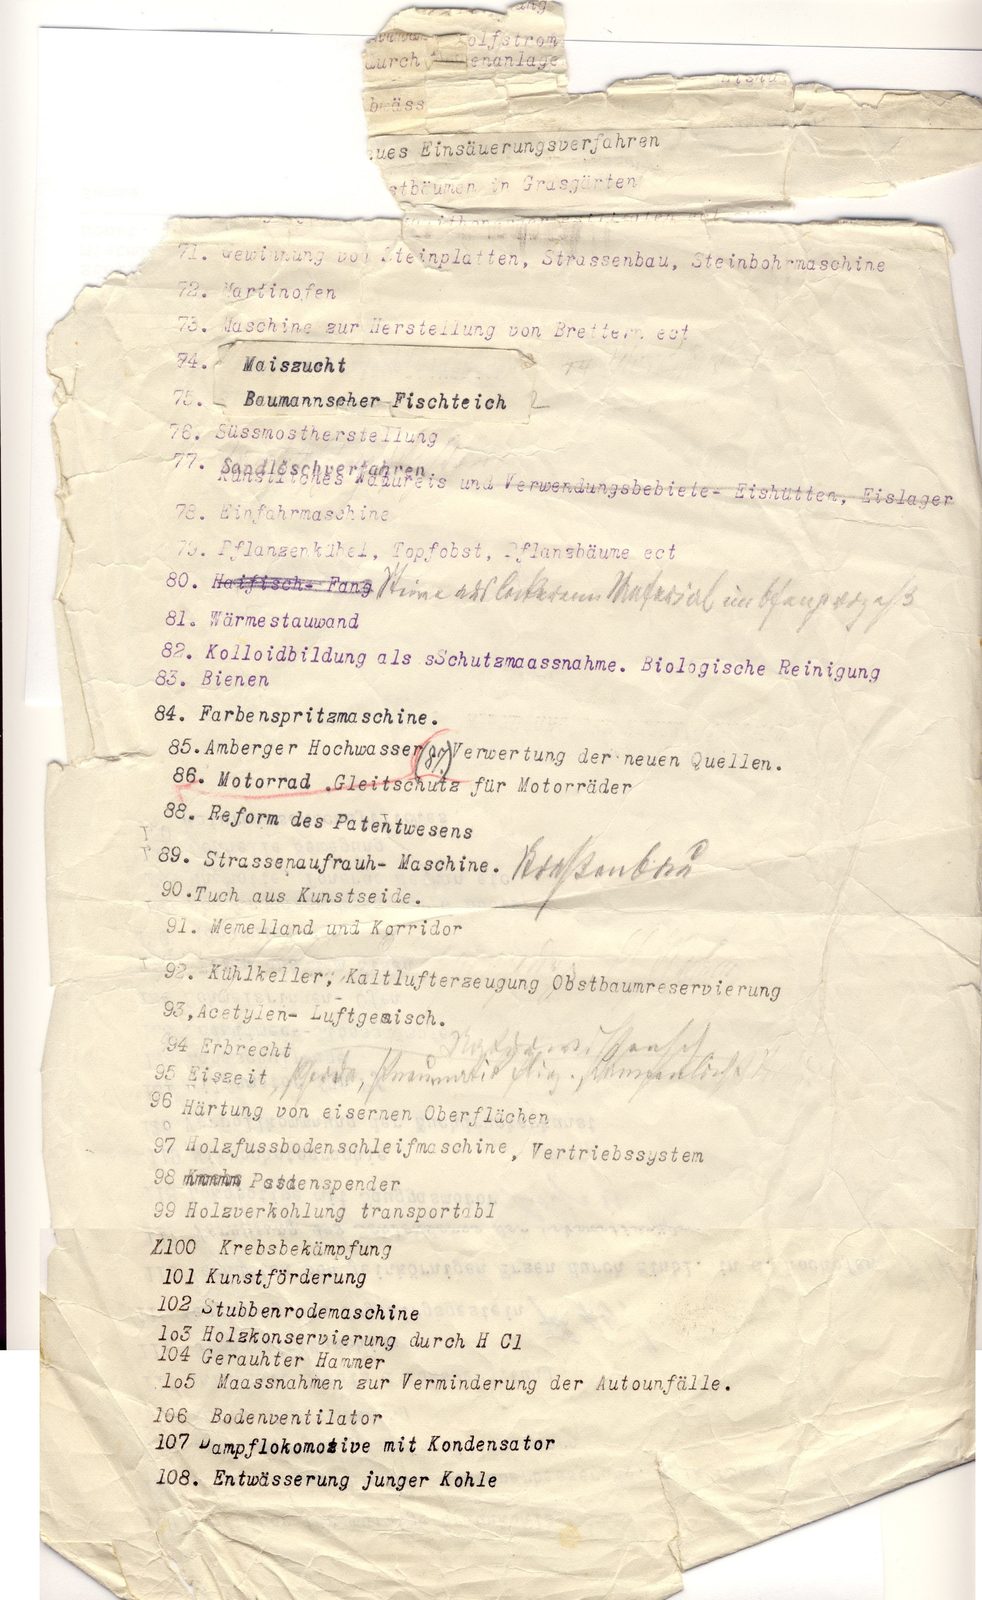 olfstrom
durch enanlage
bwäss
eues Einsäuerungsverfahren
stbäumen in Grasgärten
71. Gewinnung von Steinplatten, Strassenbau, Steinbohrmaschine
72. Martinofen
73. Maschine zur Herstellung von Brettern ect
74. Maiszucht
75. Baumannscher Fischteich 2
76. Süssmostherstellung
77. Sandlöschverfahren
Künstliches Natureis und Verwendungsbebiete- Eishütten, Eislager
78. Einfahrmaschine
79. Pflanzenkübel, Topfobst, Pflanzbäume ect
80. Haifisch- Fang Steine aus lockerem Material
81. Wärmestauwand
82. Kolloidbildung als sSchutzmaassnahme. Biologische Reinigung
83. Bienen
84. Farbenspritzmaschine.
85. Amberger Hochwasser (87) Verwertung der neuen Quellen.
86. Motorrad .Gleitschutz für Motorräder
88. Reform des Patentwesens
89. Strassenaufrauh- Maschine. Straßenbau
90. Tuch aus Kunstseide.
91. Memelland und Korridor
92. Kühlkeller, Kaltlufterzeugung Obstbaumreservierung
93, Acetylen- Luftgemisch.
94 Erbrecht
95 Eiszeit
96 Härtung von eisernen Oberflächen
97 Holzfussbodenschleifmaschine, Vertriebssystem
98 Krebs Pastenspender
99 Holzverkohlung transportabl
100 Krebsbekämpfung
101 Kunstförderung
102 Stubbenrodemaschine
1o3 Holzkonservierung durch H Cl
104 Gerauhter Hammer
1o5 Maassnahmen zur Verminderung der Autounfälle.
106 Bodenventilator
107 Dampflokomotive mit Kondensator
108. Entwässerung junger Kohle